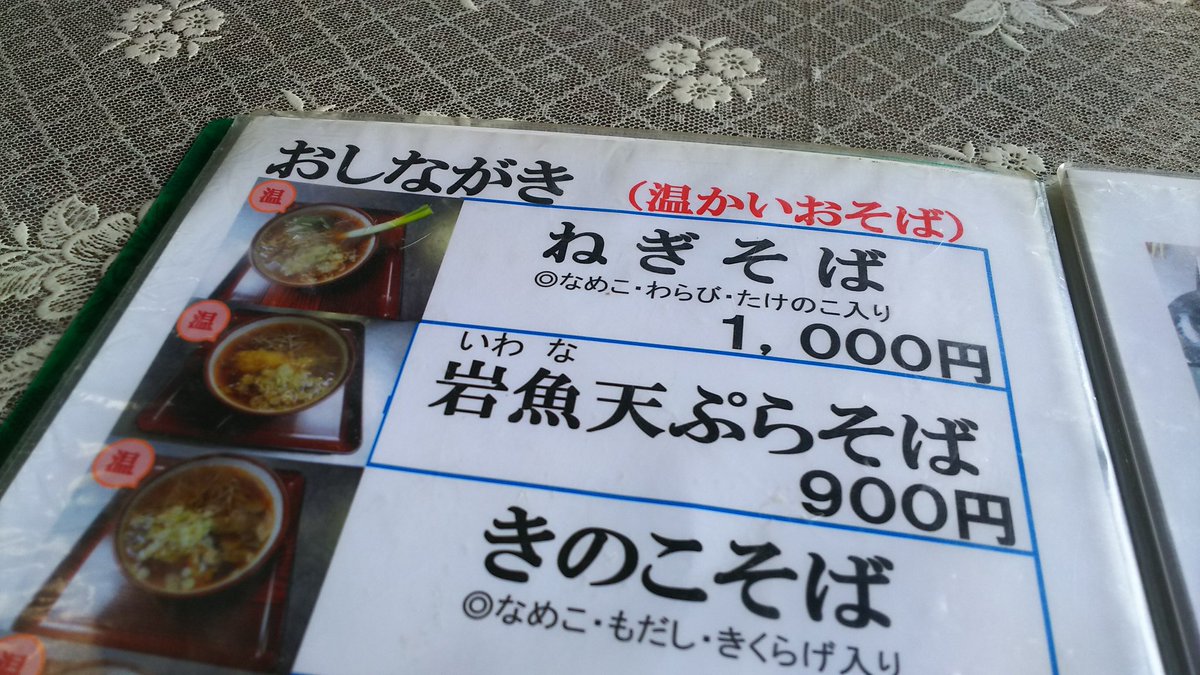 おしながき
（温かいおそば）
温
ねぎそば
◎なめこ・わらび・たけのこ入り
1,000円
温
いわな
岩魚天ぷらそば
900円
温
きのこそば
◎なめこ・もだし・きくらげ入り
温